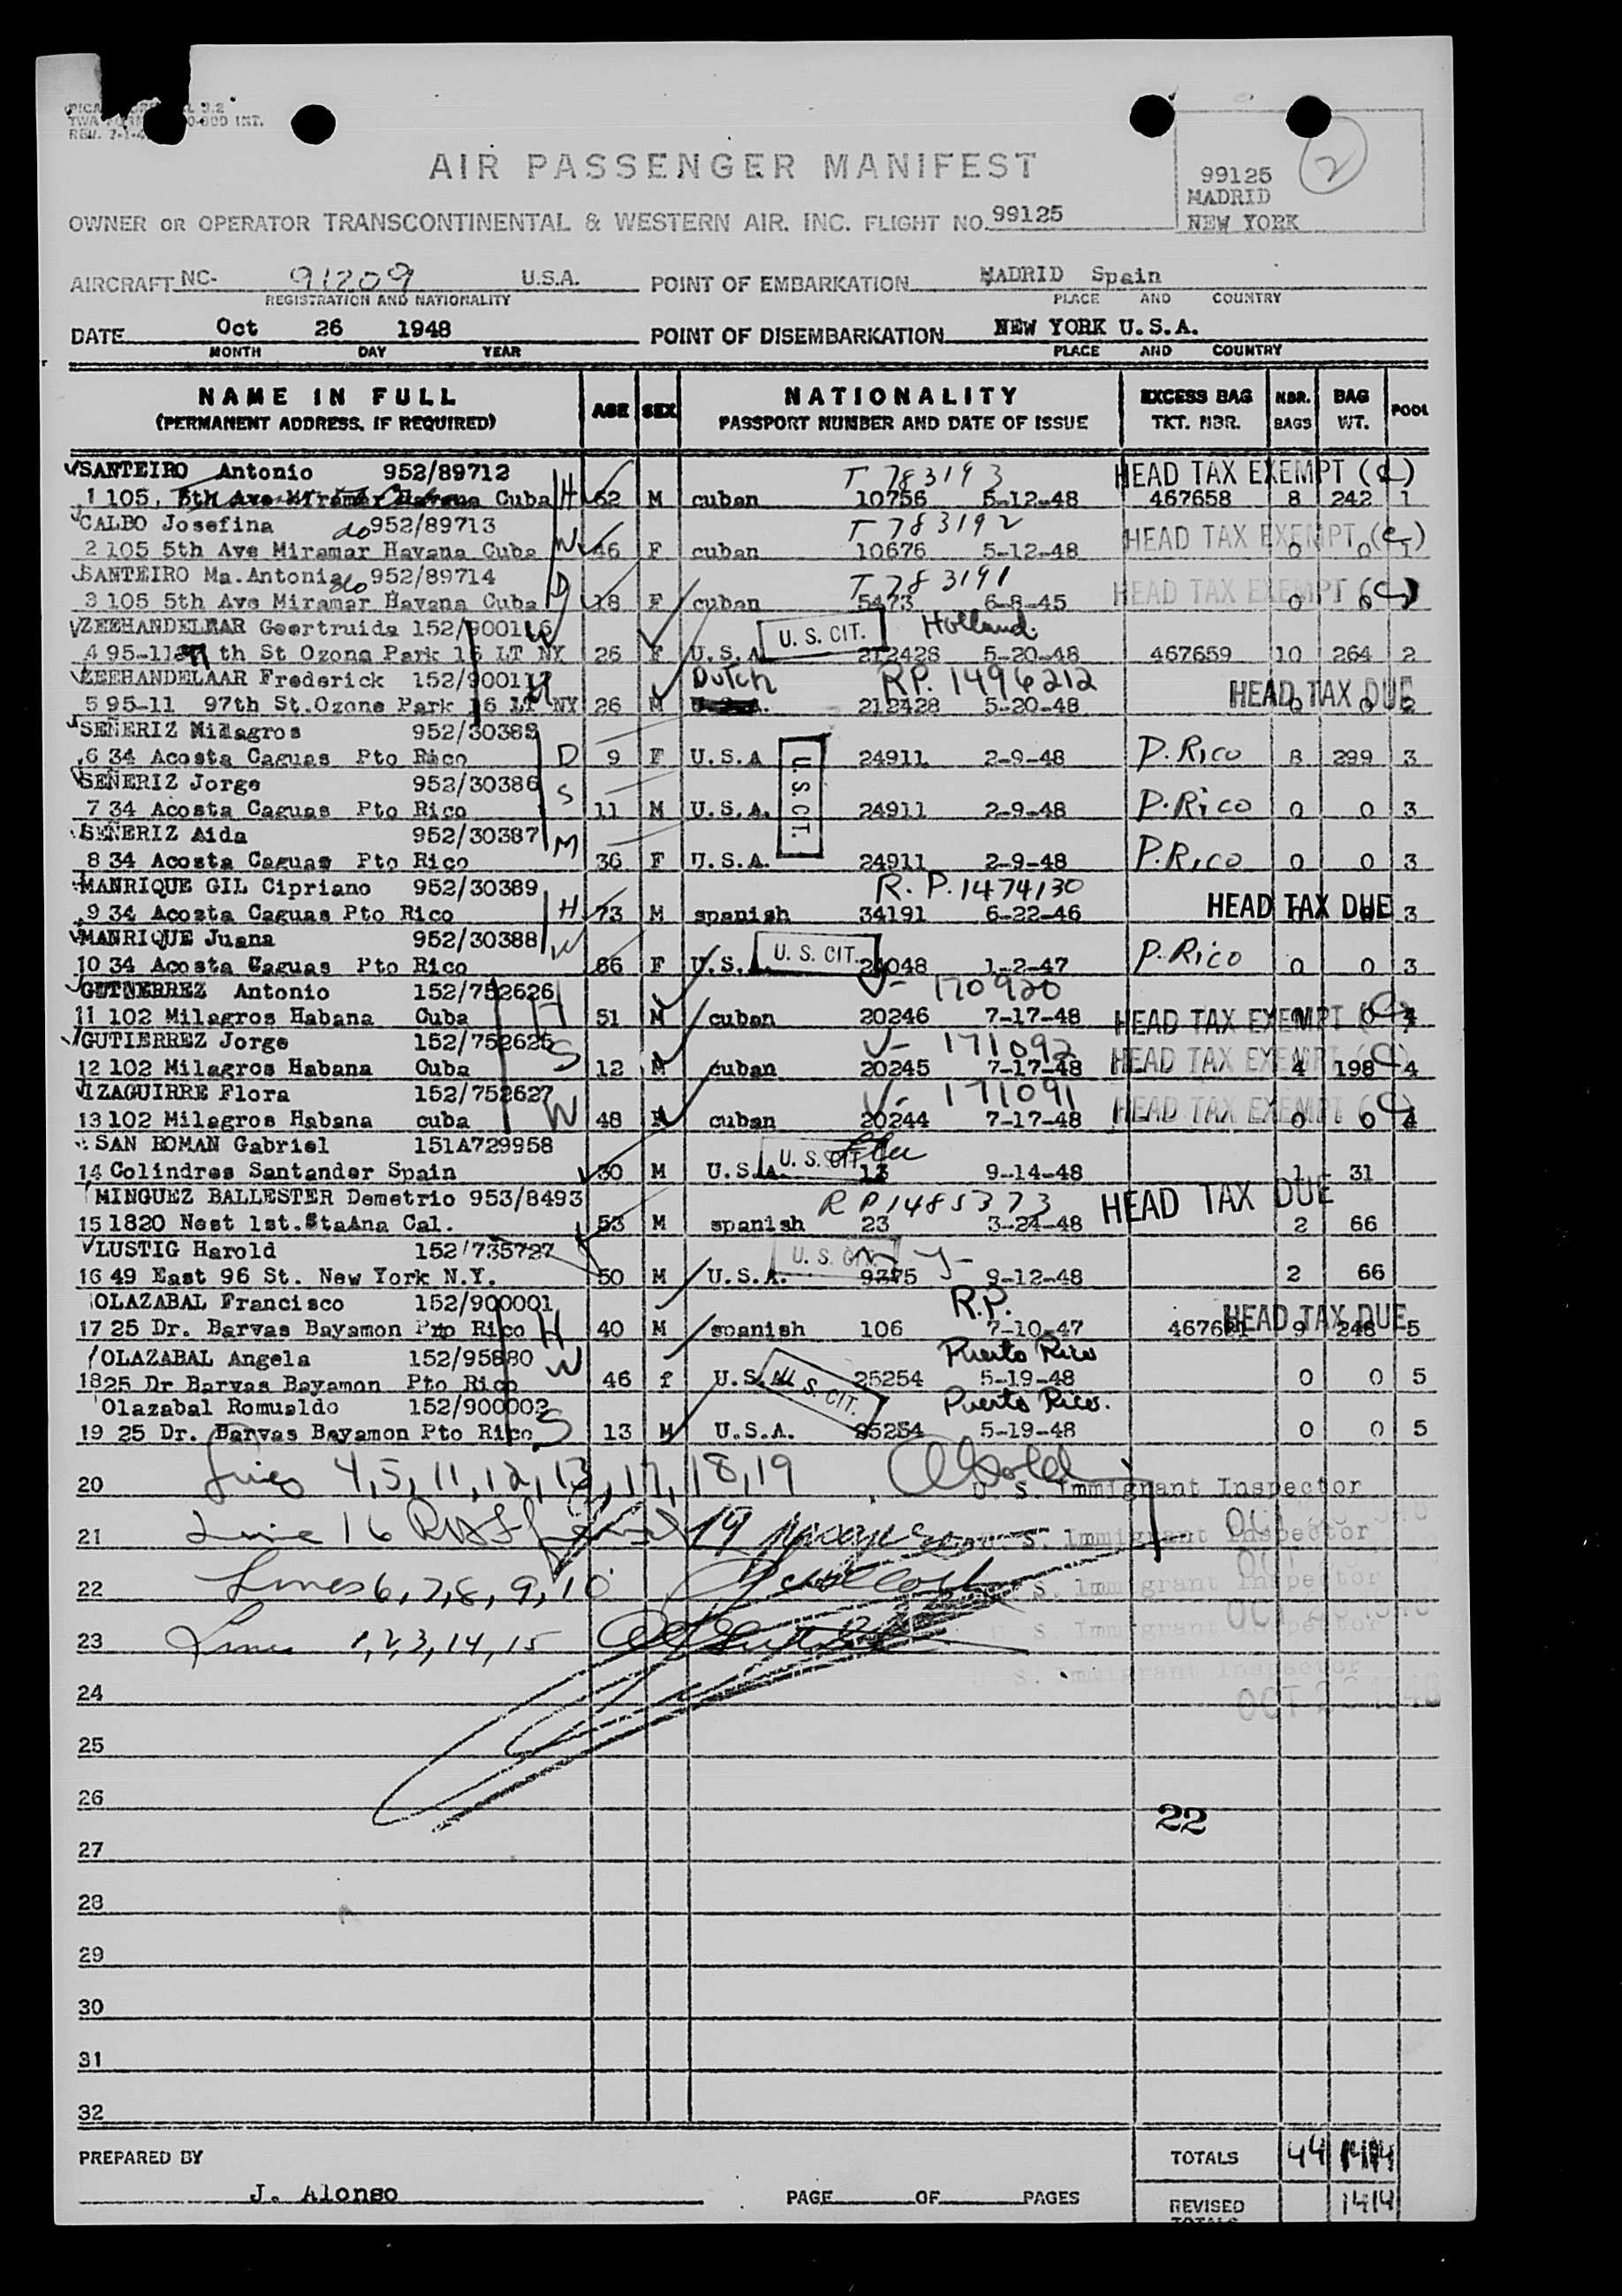 REV. 2-1-
99125
MADRID
NEW YORK
2
AIR PASSENGER MANIFEST
OWNER OR OPERATOR TRANSCONTINENTAL & WESTERN AIR. INC. FLIGHT NO. 99125
AIRCRAFT NC- 91209 U.S.A. POINT OF EMBARKATION MADRID Spain
REGISTRATION AND NATIONALITY PLACE AND COUNTRY
DATE Oct 26 1948 POINT OF DISEMBARKATION NEW YORK U.S.A.
MONTH DAY YEAR PLACE AND COUNTRY
NAME IN FULL AGE SEX NATIONALITY EXCESS BAG NBR. BAG POOL
(PERMANENT ADDRESS, IF REQUIRED) PASSPORT NUMBER AND DATE OF ISSUE TKT. NBR. BAGS WT.
SANTEIRO Antonio 952/89712 T 783193 HEAD TAX EXEMPT (C)
1 105, 5th Ave Miramar Havana Cuba H 62 M cuban 10756 5-12-48 467658 8 242 1
CALBO Josefina do 952/89713 T 783192 HEAD TAX EXEMPT (C)
2 105 5th Ave Miramar Havana Cuba W 46 F cuban 10676 5-12-48 0 0 1
SANTEIRO Ma.Antonia do 952/89714 T 783191 HEAD TAX EXEMPT (C)
3 105 5th Ave Miramar Havana Cuba D 18 F cuban 5473 6-8-45 0 0
ZEEHANDELAAR Geertruida 152/900116 W U. S. CIT. Holland.
4 95-11 97 th St Ozona Park 16 LT NY 26 F U.S.A 212428 5-20-48 467659 10 264 2
ZEEHANDELAAR Frederick 152/900117 H Dutch RP. 1496212 HEAD TAX DUE
5 95-11 97th St.Ozone Park 16 LT NY 26 M 212428 5-20-48 0 0 2
SEÑERIZ Milagros 952/30388
6 34 Acosta Caguas Pto Rico D 9 F U.S.A 24911 2-9-48 P. Rico 8 299 3
SEÑERIZ Jorge 952/30386 S U.S. CIT.
7 34 Acosta Caguas Pto Rico 11 M U.S.A. 24911 2-9-48 P. Rico 0 0 3
SEÑERIZ Aida 952/30387 M
8 34 Acosta Caguas Pto Rico 36 F U.S.A. 24911 2-9-48 P. Rico 0 0 3
MANRIQUE GIL Cipriano 952/30389 R.P. 1474130
9 34 Acosta Caguas Pto Rico H 73 M spanish 34191 6-22-46 HEAD TAX DUE 3
MANRIQUE Juana 952/30388 W U. S. CIT.
10 34 Acosta Caguas Pto Rico 66 F U.S. 21048 1-2-47 P. Rico 0 0 3
GUTIERREZ Antonio 152/752626 V- 170920
11 102 Milagros Habana Cuba H 51 M cuban 20246 7-17-48 HEAD TAX EXEMPT (C) 4
GUTIERREZ Jorge 152/752625 V- 171092
12 102 Milagros Habana Cuba S 12 M cuban 20245 7-17-48 HEAD TAX EXEMPT (C) 4 198 4
IZAGUIRRE Flora 152/752627 V- 171091
13 102 Milagros Habana cuba W 48 F cuban 20244 7-17-48 HEAD TAX EXEMPT (C) 0 0 4
SAN ROMAN Gabriel 151A729958 U. S. CIT.
14 Colindres Santander Spain 30 M U.S.A. 13 9-14-48 1 31
MINGUEZ BALLESTER Demetrio 953/8493 RP1485373 HEAD TAX DUE
15 1820 Nest 1st.StaAna Cal. 53 M spanish 23 3-24-48 2 66
LUSTIG Harold 152/735727 U. S. CIT. N Y-
16 49 East 96 St. New York N.Y. 50 M U.S.A. 9375 9-12-48 2 66
OLAZABAL Francisco 152/900001 R.P. HEAD TAX DUE
17 25 Dr. Barvas Bayamon Pto Rico H 40 M spanish 106 7-10-47 467661 9 248 5
OLAZABAL Angela 152/95880 W Puerto Rico
18 25 Dr Barvas Bayamon Pto Rico 46 f U.S.A U. S. CIT. 25254 5-19-48 0 0 5
Olazabal Romualdo 152/900002 S Puerto Rico.
19 25 Dr. Barvas Bayamon Pto Rico 13 M U.S.A. 25254 5-19-48 0 0 5
20 Lines 4,5,11,12,13,17,18,19 U. S. Immigrant Inspector
21 Line 16 U. S. Immigrant Inspector
22 Lines 6,7,8,9,10 S. Immigrant Inspector
23 Lines 1,2,3,14,15 S. Immigrant Inspector
S. Immigrant Inspector
24 OCT 26 1948
25
26
22
27
28
29
30
31
32
PREPARED BY TOTALS 44 1414
J. Alonso PAGE OF PAGES REVISED 1414
TOTALS